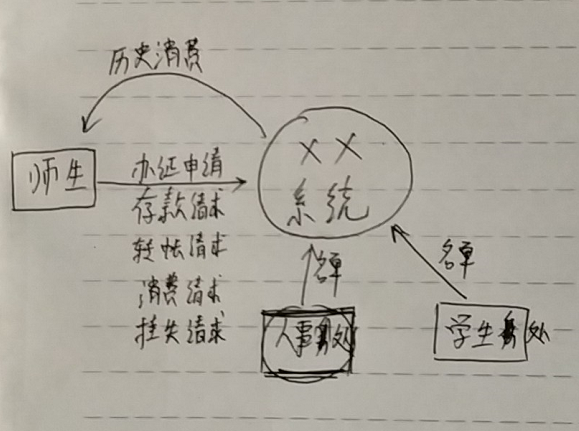 历史消费
师生
办证申请
存款请求
转帐请求
消费请求
挂失请求
XX
系统
名单
名单
人事处
学生处